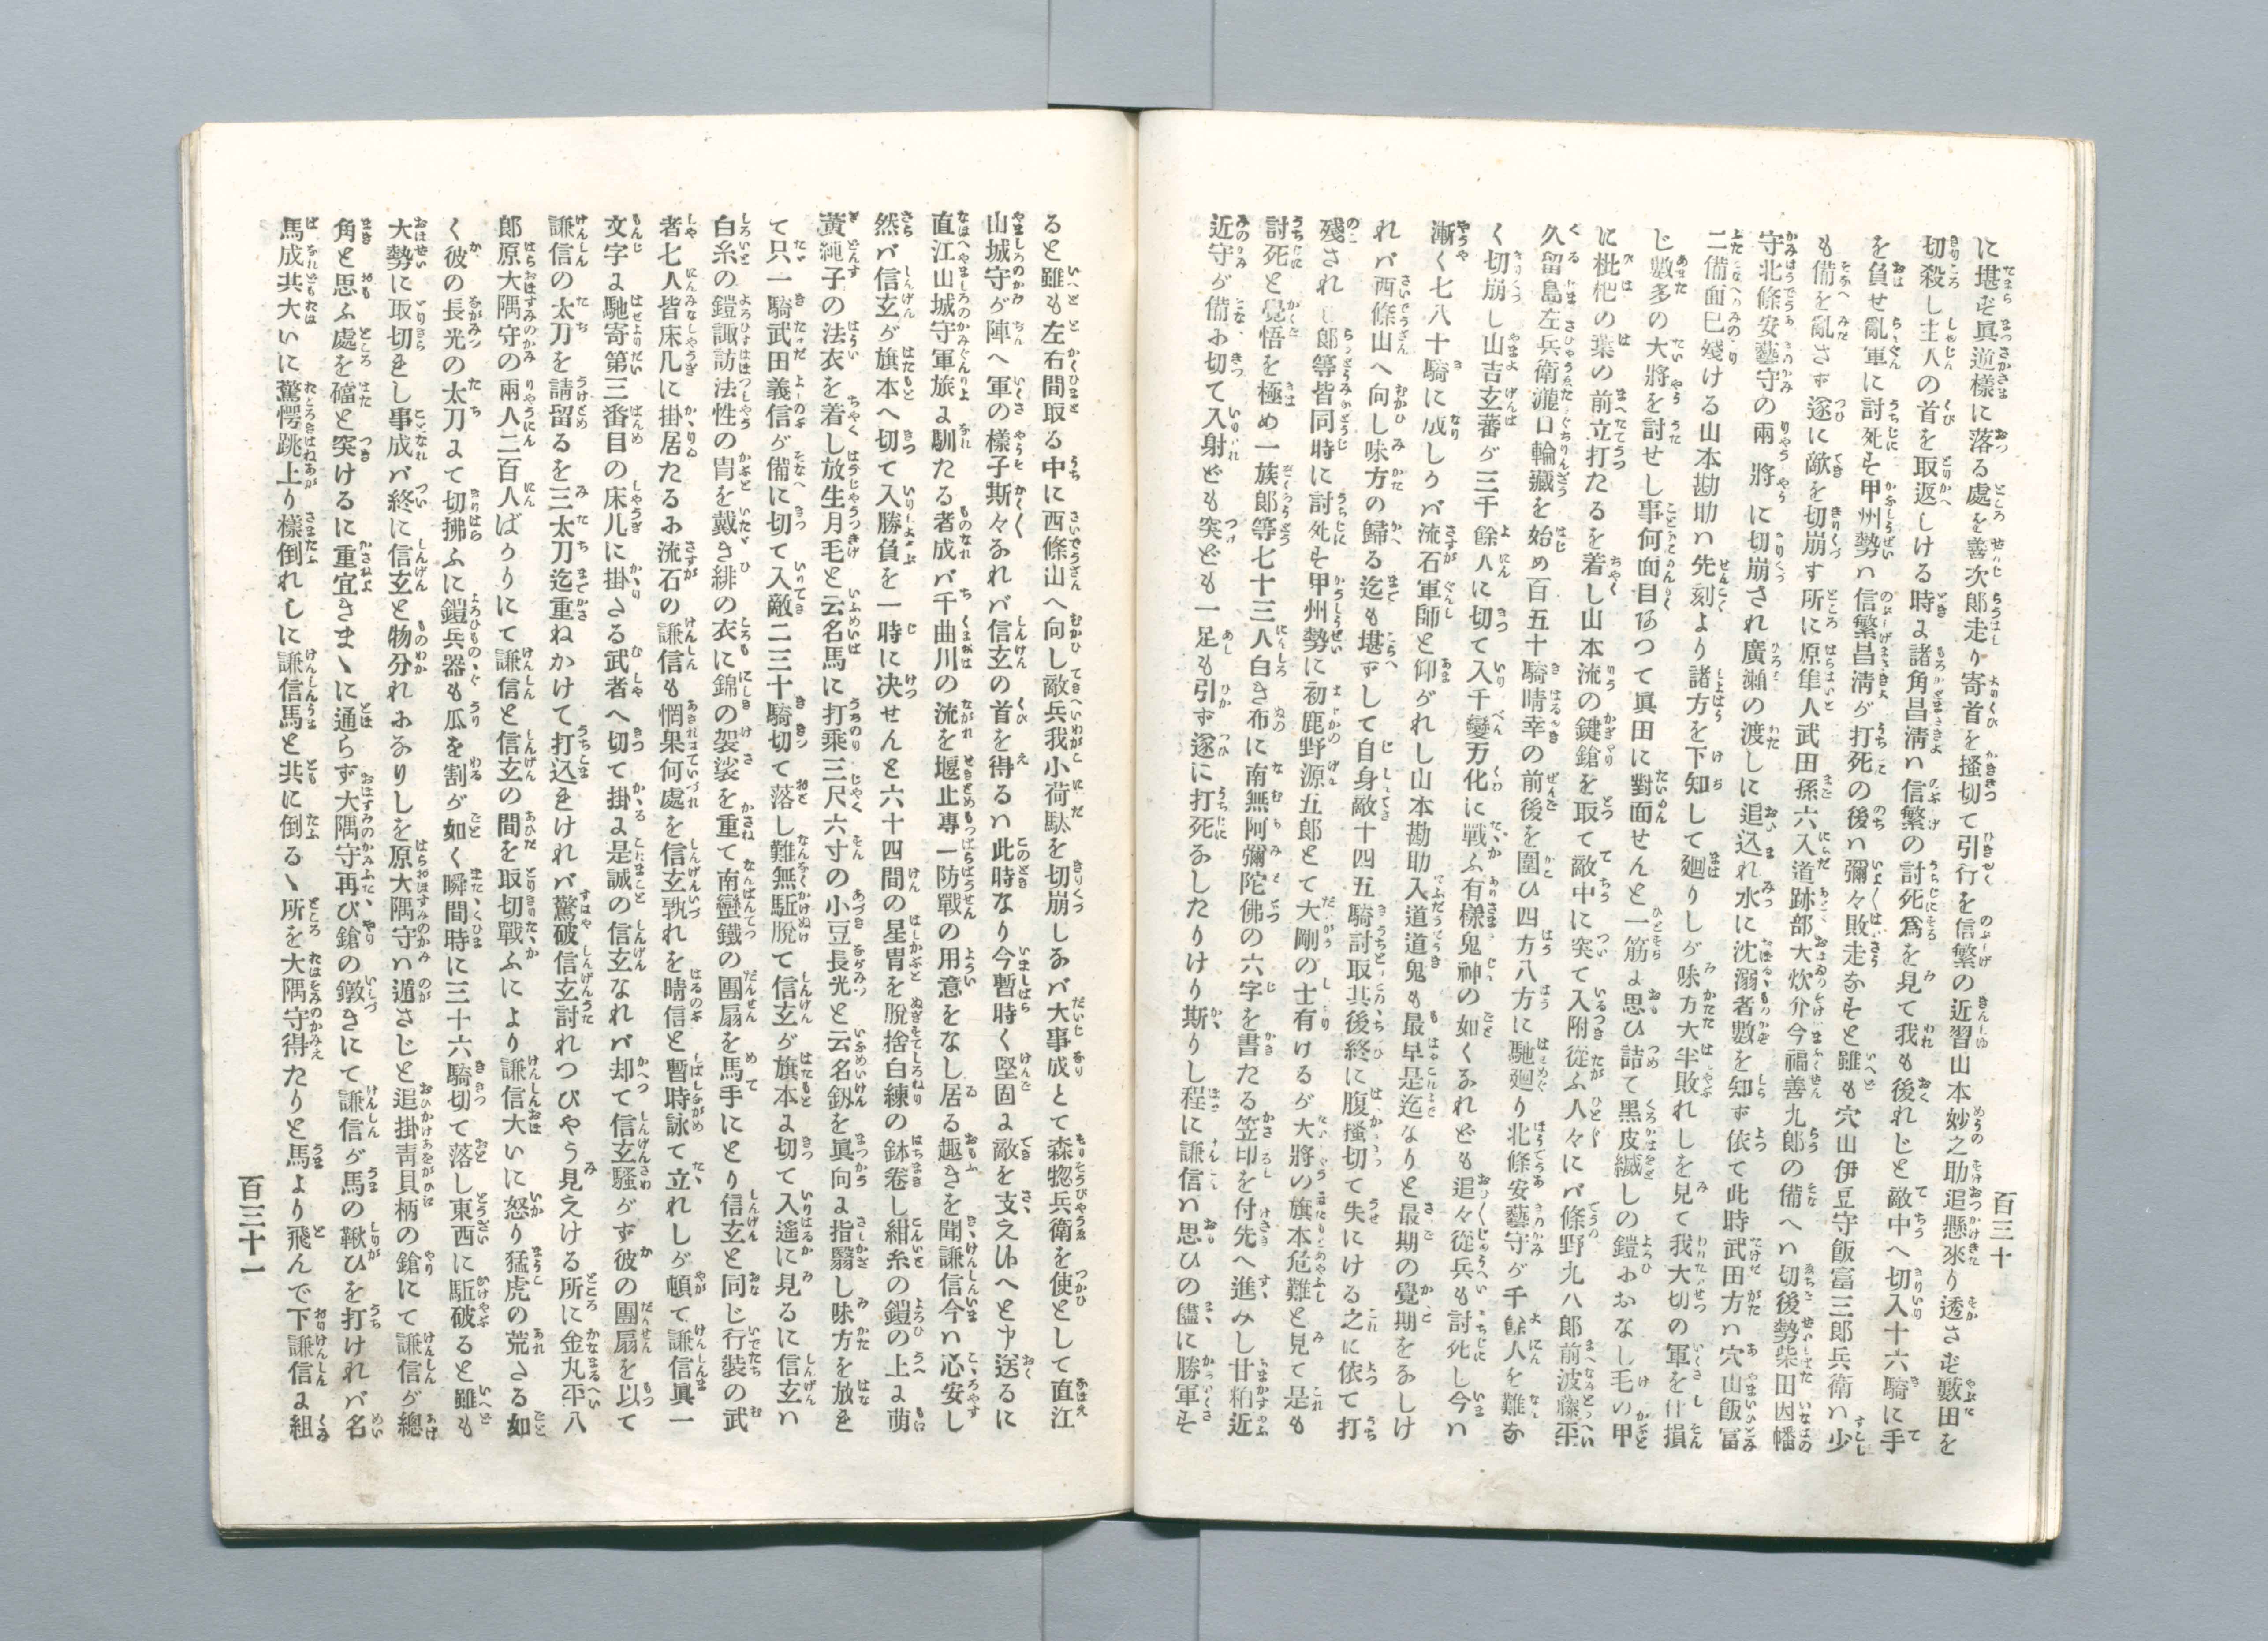 百三十
に堪ず眞逆樣に落る處を善次郎走り寄首を搔切て引行を信繁の近習山本妙之助追懸來り透さず藪田を
切殺し主人の首を取返しける時に諸角昌淸ハ信繁の討死爲を見て我も後れじと敵中へ切入十六騎に手
を負せ亂軍に討死す甲州勢ハ信繁昌淸が打死の後ハ彌々敗走なすと雖も穴山伊豆守飯富三郎兵衛ハ少
も備を亂さず遂に敵を切崩す所に原隼人武田孫六入道跡部大炊介今福善九郎の備へハ切後勢柴田因幡
守北條安藝守の兩將に切崩され廣瀬の渡しに追込れ水に沈溺者數を知ず依て此時武田方ハ穴山飯冨
二備而巳殘ける山本勘助ハ先刻より諸方を下知して廻りしが味方大半敗れしを見て我大切の軍を仕損
じ數多の大將を討せし事何面目あつて眞田に對面せんと一筋に思ひ詰て黑皮縅しの鎧におなし毛の甲
に枇杷の葉の前立打たるを着し山本流の鍵鎗を取て敵中に突て入附從ふ人々にハ條野九八郎前波藤平
久留島左兵衛瀧口輪藏を始め百五十騎晴幸の前後を圍ひ四方八方に馳廻り北條安藝守が千餘人を難な
く切崩し山吉玄蕃が三千餘人に切て入千變万化に戰ふ有樣鬼神の如くなれども追々從兵も討死し今ハ
漸く七八十騎に成しかバ流石軍師と仰がれし山本勘助入道道鬼も最早是迄なりと最期の覺期をなしけ
れバ西條山へ向し味方の歸る迄も堪ずして自身敵十四五騎討取其後終に腹搔切て失にける之に依て打
殘されし郎等皆同時に討死す甲州勢に初鹿野源五郎とて大剛の士有けるが大將の旗本危難と見て是も
討死と覺悟を極め一族郎等七十三人白き布に南無阿彌陀佛の六字を書たる笠印を付先へ進みし甘粕近
近守が備に切て入射ども突ども一足も引ず遂に打死なしたりけり斯りし程に謙信ハ思ひの儘に勝軍す
ると雖も左右間取る中に西條山へ向し敵兵我小荷駄を切崩しなバ大事成とて森惣兵衛を使として直江
山城守が陣へ軍の樣子斯々なれバ信玄の首を得るハ此時なり今暫時く堅固に敵を支え候へと申送るに
直江山城守軍旅に馴たる者成バ千曲川の流を堰止專一防戰の用意をなし居る趣きを聞謙信今ハ心安し
然バ信玄が旗本へ切て入勝負を一時に决せんと六十四間の星冑を脫捨白練の鉢卷し紺糸の鎧の上に萠
黃純子の法衣を着し放生月毛と云名馬に打乘三尺六寸の小豆長光と云名釼を眞向に指翳し味方を放を
て只一騎武田義信が備に切て入敵二三十騎切て落し難無駈脫て信玄が旗本に切て入遙に見るに信玄ハ
白糸の鎧諏訪法性の冑を戴き緋の衣に錦の袈裟を重て南蠻鐵の團扇を馬手にとり信玄と同じ行裝の武
者七人皆床几に掛居たるに流石の謙信も惘果何處を信玄孰れを晴信と暫時詠て立れしが頓て謙信眞一
文字に馳寄第三番目の床几に掛りさる武者へ切て掛に是誠の信玄なれバ却て信玄騷がず彼の團扇を以て
謙信の太刀を請留るを三太刀迄重ねかけて打込をけれバ驚破信玄討れつびやう見えける所に金丸平八
郎原大隅守の兩人二百人ばかりにて謙信と信玄の間を取切戰ふにより謙信大いに怒り猛虎の荒さる如
く彼の長光の太刀にて切拂ふに鎧兵器も瓜を割が如く瞬間時に三十六騎切て落し東西に駈破ると雖も
大勢に取切をし事成バ終に信玄と物分れになりしを原大隅守ハ遁さじと追掛靑貝柄の鎗にて謙信が總
角と思ふ處を礑と突けるに重宜きまゝに通らず大隅守再び鎗の鐓きにて謙信が馬の鞦ひを打けれバ名
馬成共大いに驚愕跳上り樣倒れしに謙信馬と共に倒るゝ所を大隅守得たりと馬より飛んで下謙信に組
百三十一